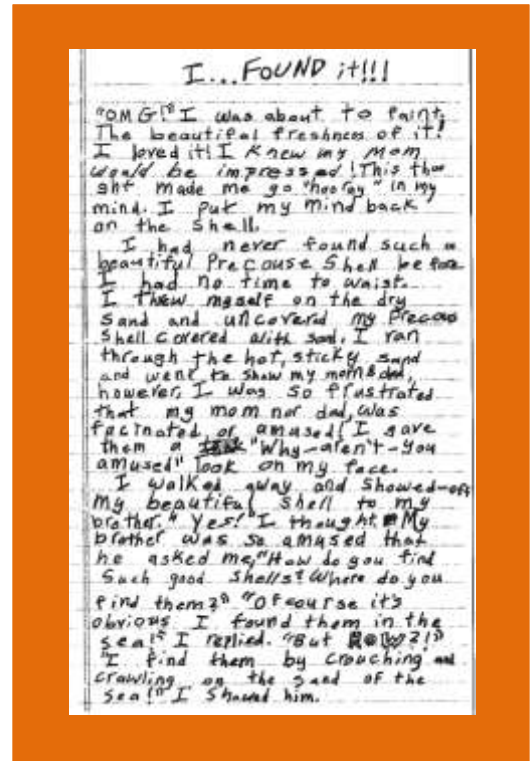 I...FOUND it!!!
"OMG!" I was about to faint.
The beautiful freshness of it!
I loved it! I knew my Mom
would be impressed! This thou
ght made me go "hooray" in my
mind. I put my mind back
on the shell.
I had never found such a
beautiful Precouse Shell before
I had no time to waist.
I threw myself on the dry
sand and uncoverd my Precous
Shell covered with sand. I ran
through the hot, sticky sand
and went to show my mom & dad,
however, I was so frustrated
that my mom nor dad, was
facinated or amused! I gave
them a "Why-aren't-you
amused" look on my face.
I walked away and showed-off
my beautiful shell to my
brother. "Yes!" I thought. My
brother was so amused that
he asked me, "How do you find
such good shells? Where do you
find them?" "Of course it's
obvious I found them in the
sea!" I replied. "But HOW?!"
"I find them by crouching and
crawling on the sand of the
sea!" I showed him.